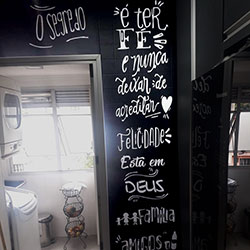 O segredo
é ter
FÉ
e nunca
deixar de
acreditar
FELICIDADE
Está em
DEUS
FAMÍLIA
AMIGOS